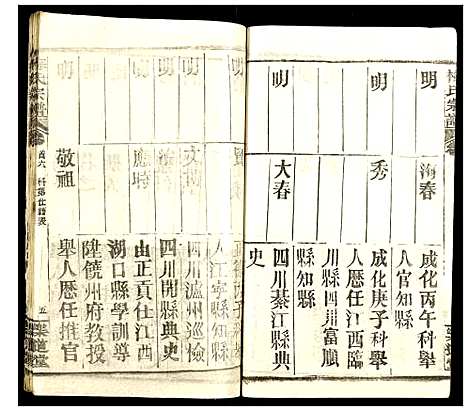 明
海春
成化丙午科舉
人官知縣
明
秀
成化庚子科舉
人歷任江西臨
川縣四川富順
縣知縣
明
大春
四川綦江縣典
史
人江寧縣知縣
明
文
四川瀘州巡檢
明
四川開縣典史
明
應時
由正貢仕江西
湖口縣學訓導
陞饒州府教授
明
敬祖
舉人歷任推官
氏宗譜
卷六 科第仕籍表
五
道堂